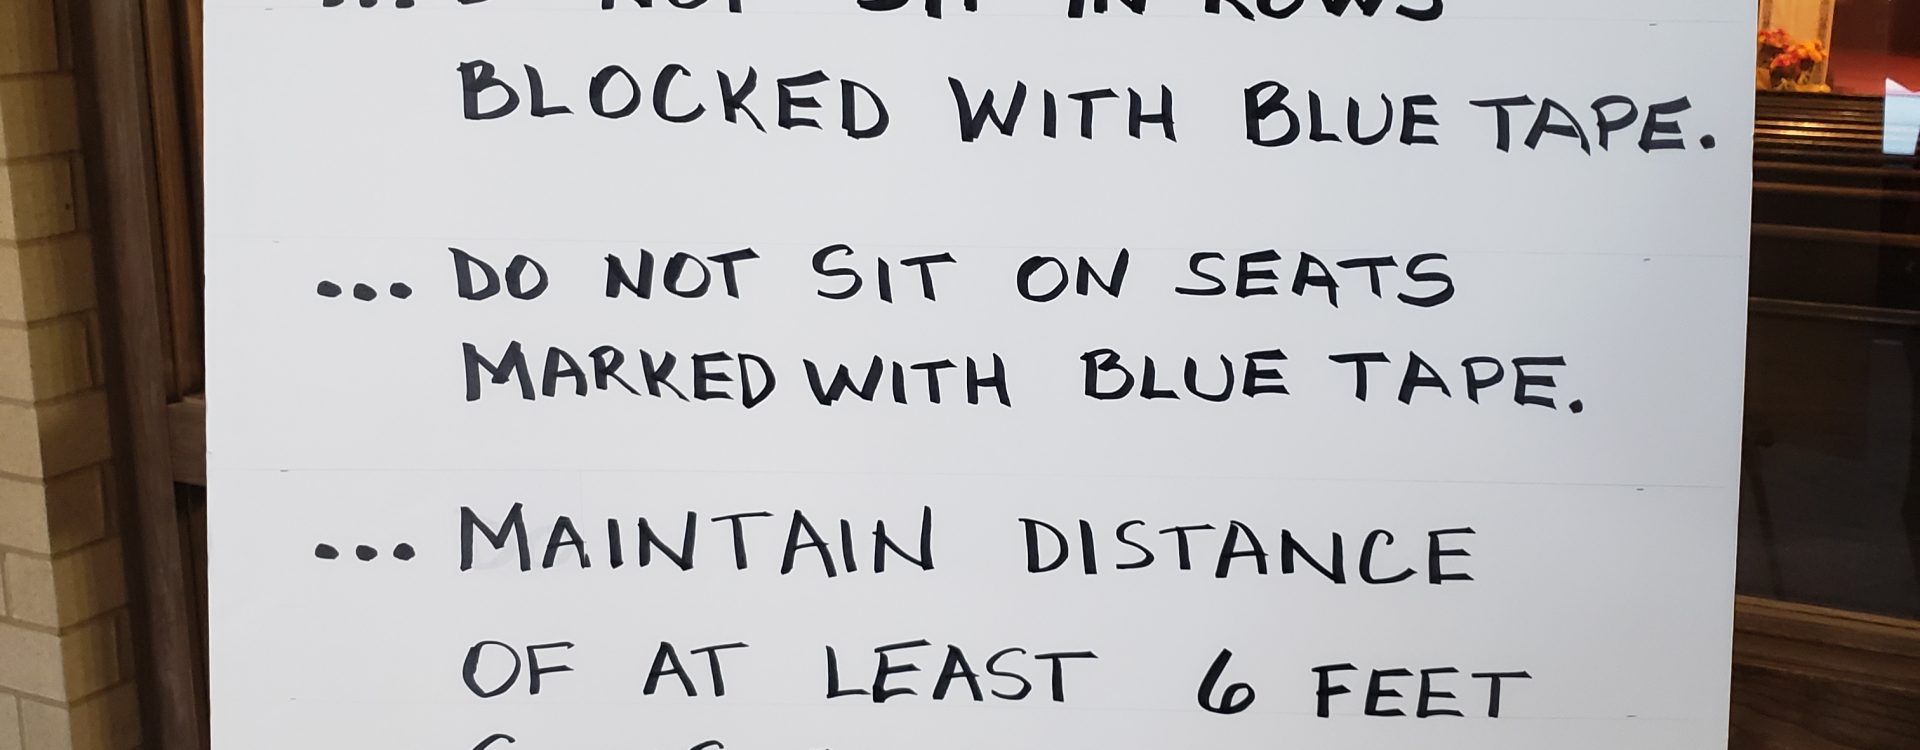 ... DO NOT SIT IN ROWS
BLOCKED WITH BLUE TAPE.
... DO NOT SIT ON SEATS
MARKED WITH BLUE TAPE.
... MAINTAIN DISTANCE
OF AT LEAST 6 FEET